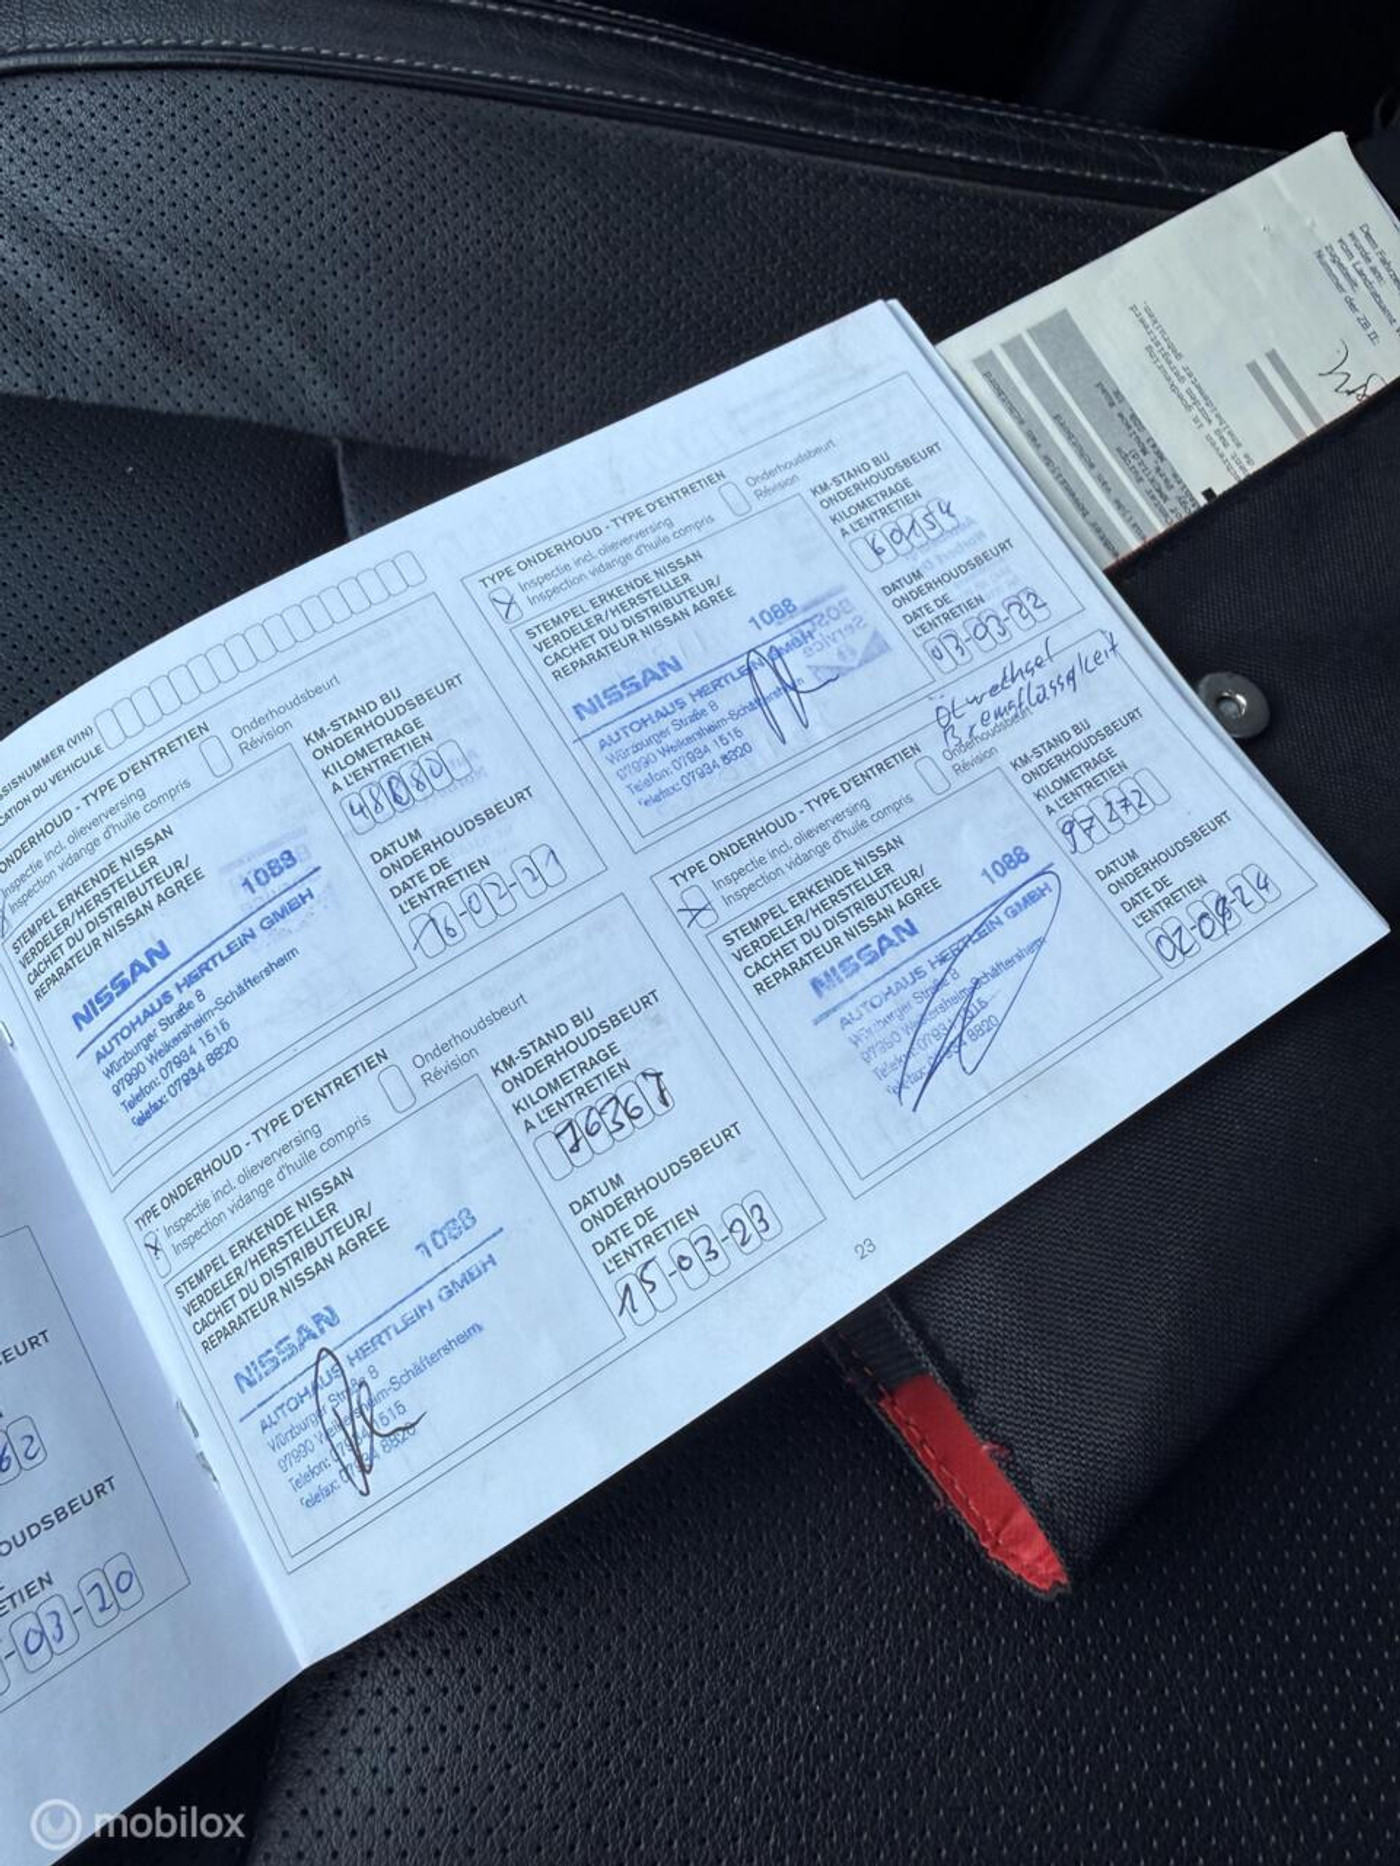 EURT
62
OUDSBEURT
ETIEN
-03-20
TYPE D'ENTRETIEN
Inspectie incl. olieverversing
Inspection vidange d'huile compris
Onderhoudsbeurt
Révision
STEMPEL ERKENDE NISSAN
VERDELER/HERSTELLER
CACHET DU DISTRIBUTEUR/
REPARATEUR NISSAN AGREE
1088
NISSAN
AUTOHAUS HERTLEIN GMBH
Würzburger Straße 8
97990 Weikersheim-Schäftersheim
Telefon: 07934 1515
Telefax: 07934 8820
KM-STAND BIJ
ONDERHOUDSBEURT
KILOMETRAGE
A L'ENTRETIEN
DATUM
ONDERHOUDSBEURT
DATE DE
L'ENTRETIEN
16-02-21
TYPE ONDERHOUD - TYPE D'ENTRETIEN
X Inspectie incl. olieverversing
Inspection vidange d'huile compris
Onderhoudsbeurt
Révision
STEMPEL ERKENDE NISSAN
VERDELER/HERSTELLER
CACHET DU DISTRIBUTEUR/
REPARATEUR NISSAN AGREE
1088
NISSAN
AUTOHAUS HERTLEIN GMBH
Würzburger Straße 8
97990 Weikersheim-Schäftersheim
Telefon: 07934 1515
Telefax: 07934 8820
KM-STAND BIJ
ONDERHOUDSBEURT
KILOMETRAGE
A L'ENTRETIEN
76367
DATUM
ONDERHOUDSBEURT
DATE DE
L'ENTRETIEN
15-03-23
TYPE ONDERHOUD - TYPE D'ENTRETIEN
X Inspectie incl. olieverversing
Inspection vidange d'huile compris
Onderhoudsbeurt
Révision
STEMPEL ERKENDE NISSAN
VERDELER/HERSTELLER
CACHET DU DISTRIBUTEUR/
REPARATEUR NISSAN AGREE
1088
NISSAN
AUTOHAUS HERTLEIN GMBH
Würzburger Straße 8
97990 Weikersheim-Schäftersheim
Telefon: 07934 1515
Telefax: 07934 8820
KM-STAND BIJ
ONDERHOUDSBEURT
KILOMETRAGE
A L'ENTRETIEN
60154
DATUM
ONDERHOUDSBEURT
DATE DE
L'ENTRETIEN
03-03-22
Ölwechsel
Bremsflüssigkeit
TYPE ONDERHOUD - TYPE D'ENTRETIEN
X Inspectie incl. olieverversing
Inspection vidange d'huile compris
Onderhoudsbeurt
Révision
STEMPEL ERKENDE NISSAN
VERDELER/HERSTELLER
CACHET DU DISTRIBUTEUR/
REPARATEUR NISSAN AGREE
1088
NISSAN
AUTOHAUS HERTLEIN GMBH
Würzburger Straße 8
Telefon: 07934 1515
KM-STAND BIJ
ONDERHOUDSBEURT
KILOMETRAGE
A L'ENTRETIEN
97272
DATUM
ONDERHOUDSBEURT
DATE DE
L'ENTRETIEN
23
Nummer der ZB II:
mobilox